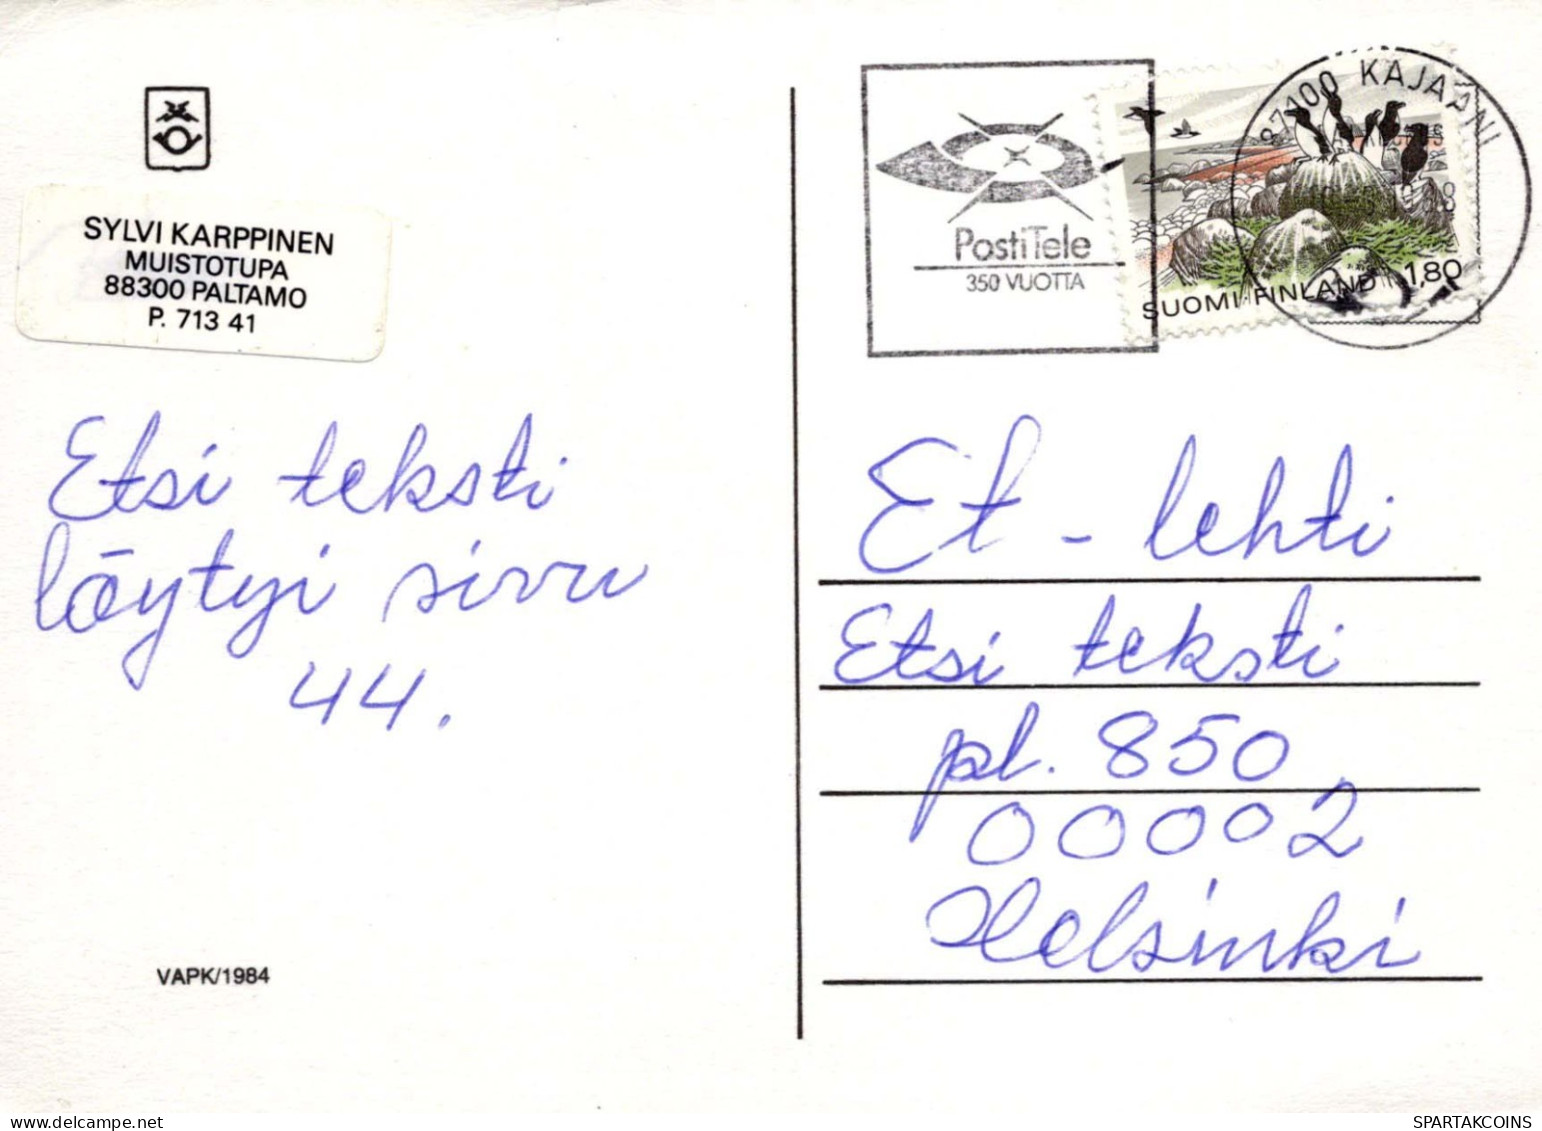 SYLVI KARPPINEN
MUISTOTUPA
88300 PALTAMO
P. 713 41
Etsi teksti
löytyi sivu
44.
VAPK/1984
PostiTele
350 VUOTTA
87100 KAJAANI
SUOMI FINLAND 1,80
Et - lehti
Etsi teksti
pl. 850
00002
Helsinki
SPARTAKCOINS